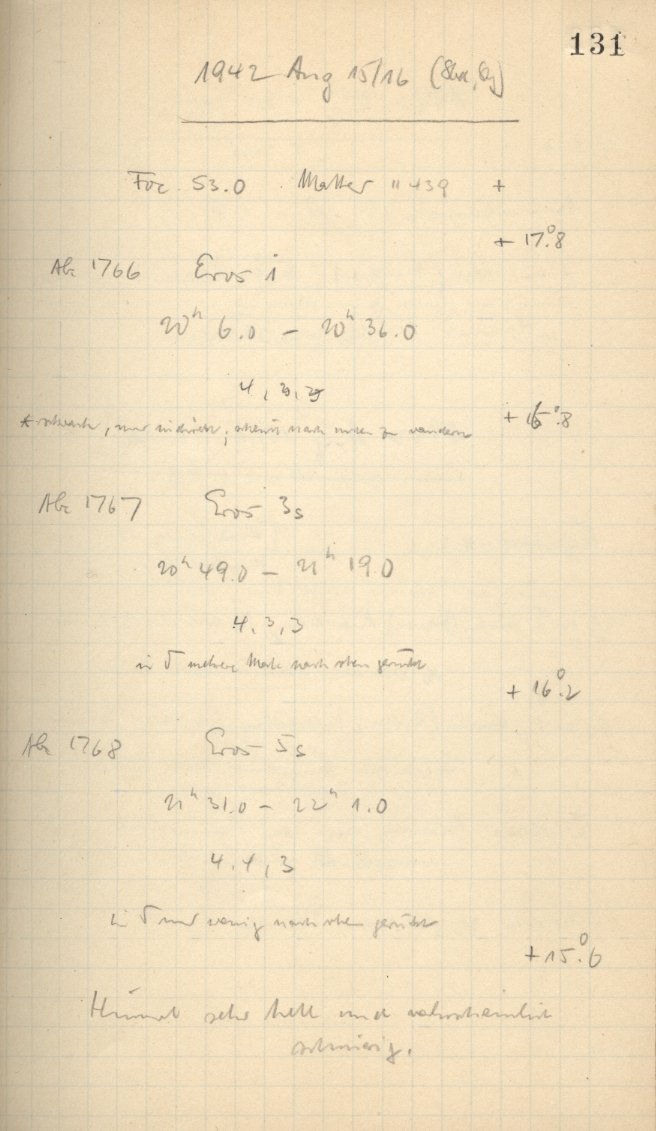 131
1942 Aug 15/16
Foc. 53.0 . Matter " 439 +
+ 17°.8
Ab 1766 Eros 1
20h 6.0 – 20h 36.0
4, 3, 3
schwach, nur indirekt, scheint nach unten zu wandern
+ 16°.8
Ab 1767 Eros 3s
20h 49.0 – 21h 19.0
4, 3, 3
in δ mehrere Male nach oben gerückt
+ 16°.2
Ab 1768 Eros 5s
21h 31.0 – 22h 1.0
4.4, 3
in δ nur wenig nach oben gerückt
+ 15°.6
Himmel sehr hell und wahrscheinlich
schmierig.